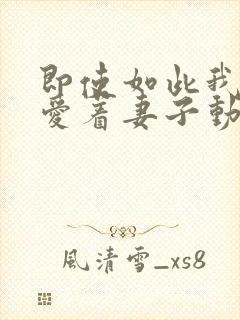 即使如此我
爱着妻子動
風清雪_xs8